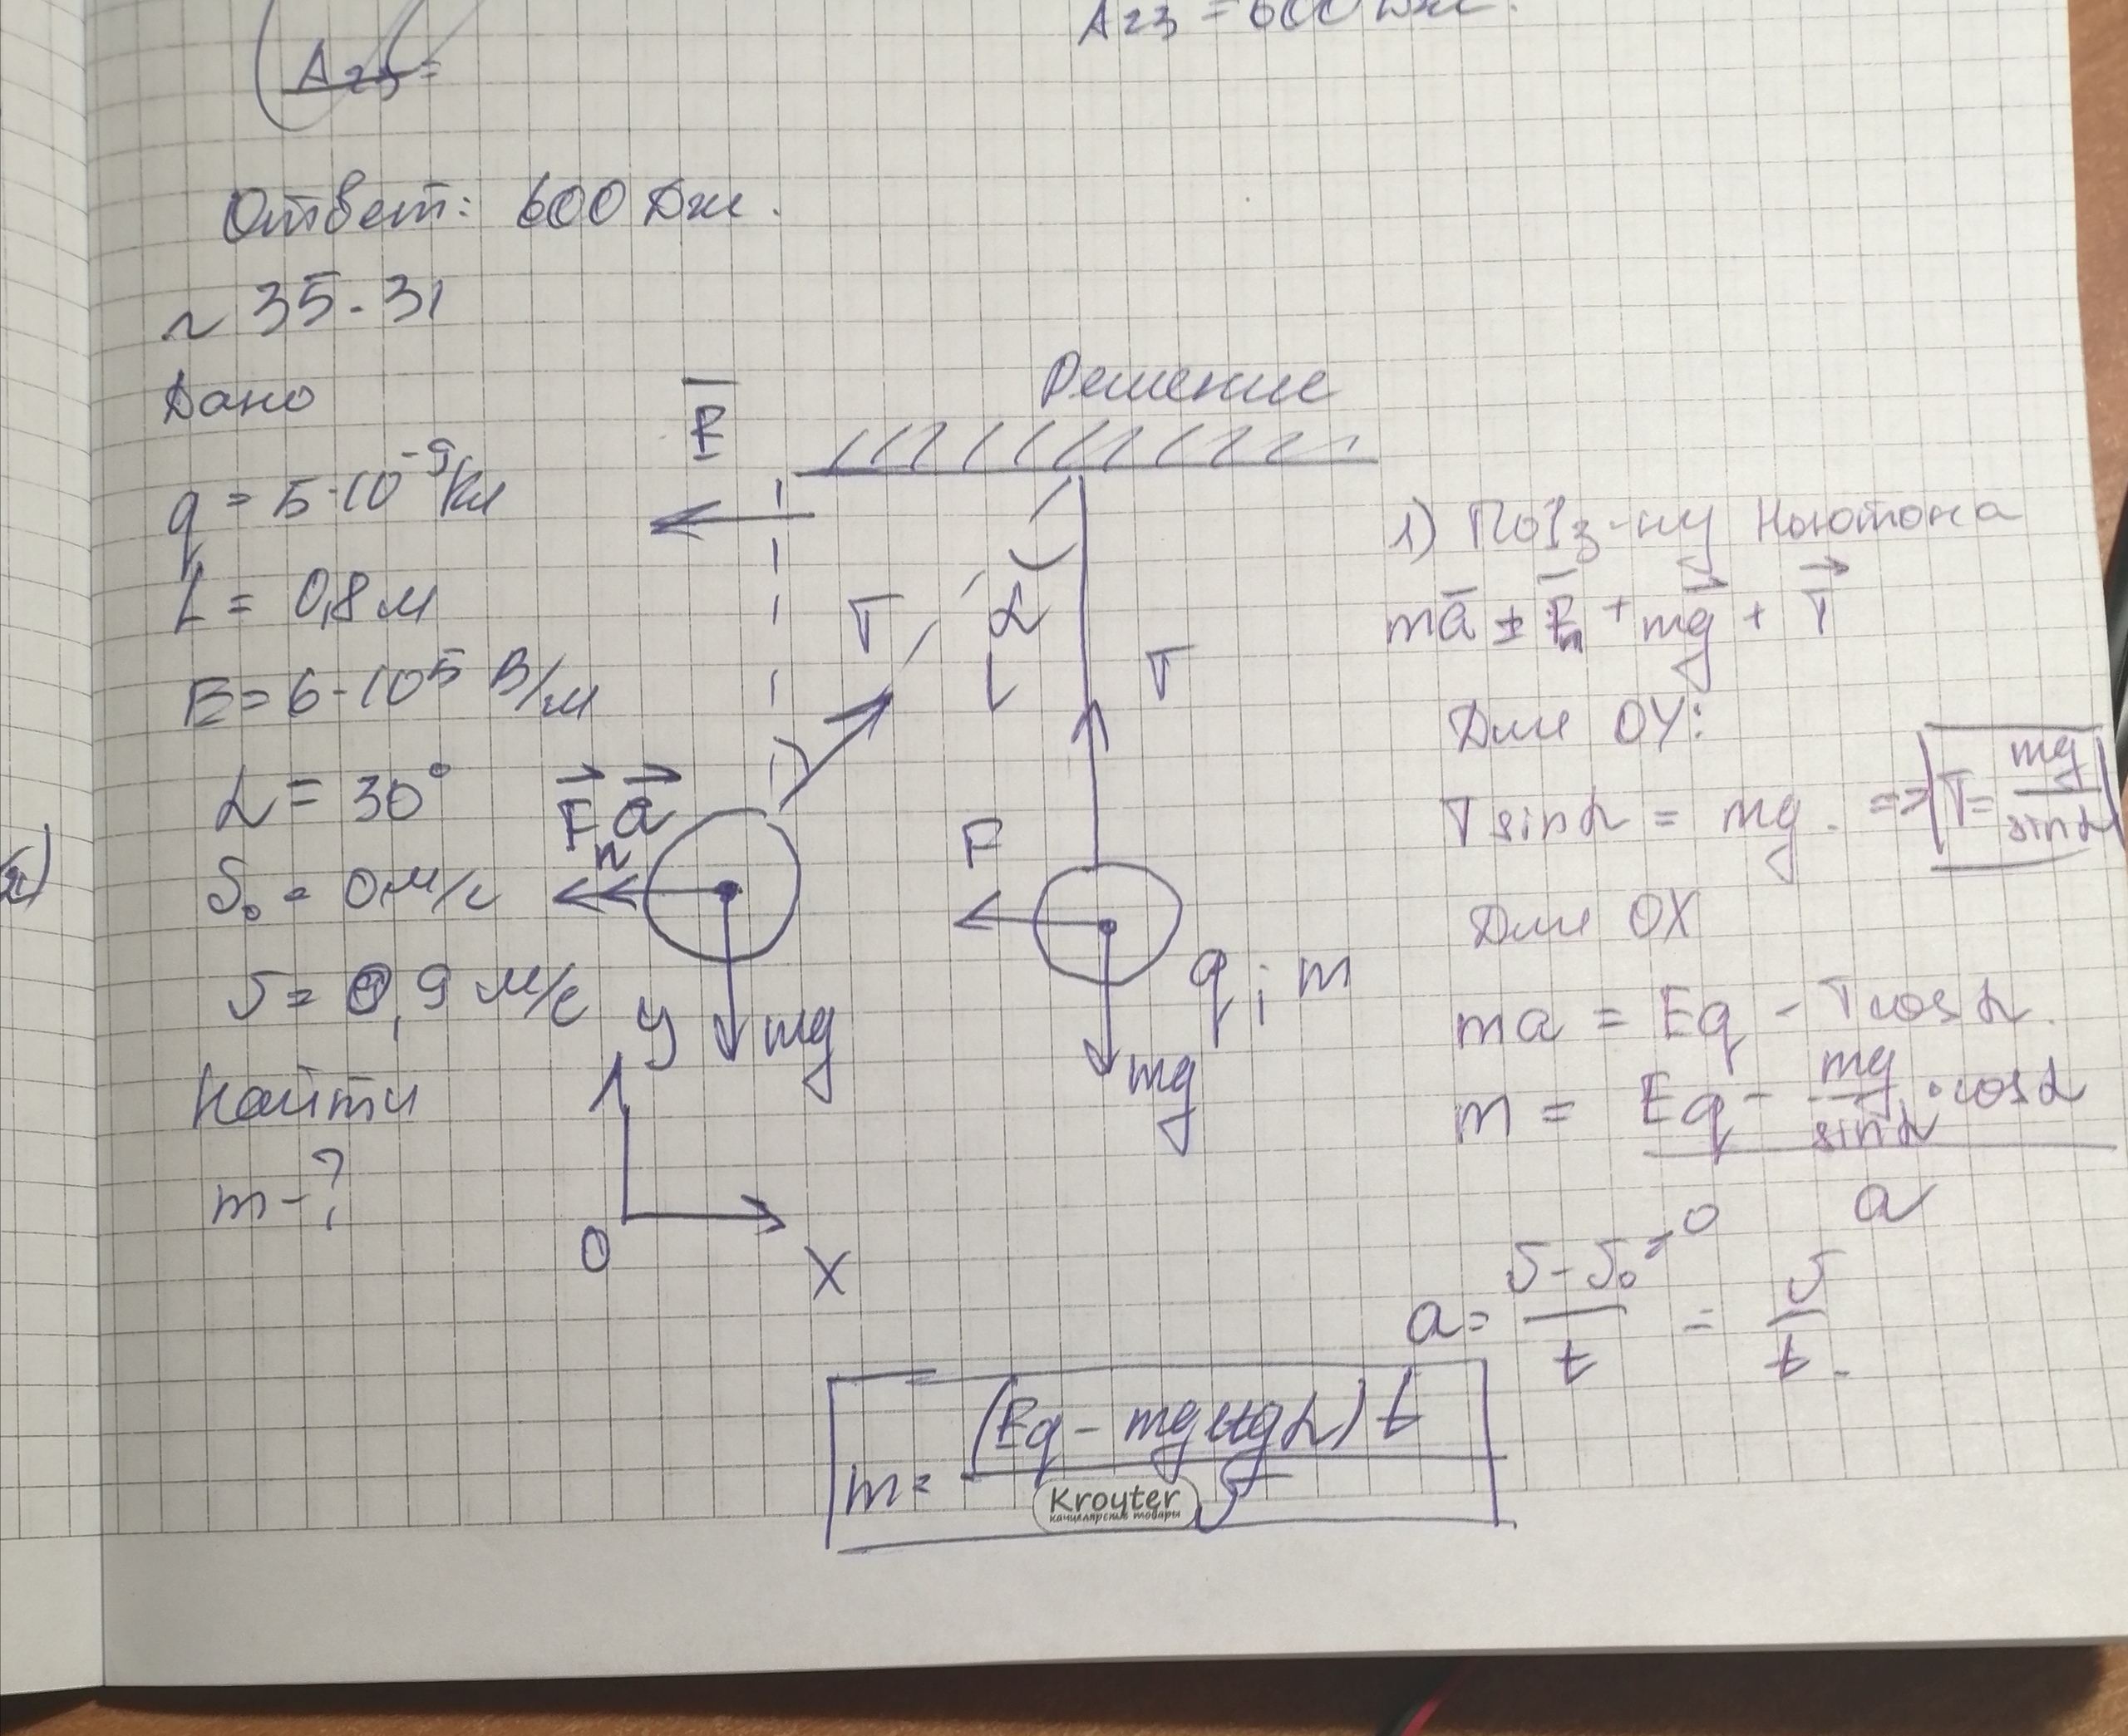 A₂₃ = 600 Дж.
A₂₃ =
Ответ: 600 Дж.
~ 35-31
Дано
Решение
q = 5·10⁻⁹ Кл
L = 0,8 м
E = 6·10⁵ В/м
α = 30°
υ₀ = 0 м/с
υ = 0,9 м/с
Найти
m-?
E
T
α
L
T
Fп a
F
mg
q; m
mg
y
0
X
1) По I з-ну Ньютона
ma = Fп + mg + T
Для OY:
T sinα = mg. => T = mg/sinα
Для OX
ma = Eq - T cosα.
m = (Eq - mg/sinα · cosα)/a
a = (υ-υ₀⁼⁰)/t = υ/t.
m = (Eq - mg ctgα) t/υ
Kroyter
канцелярские товары